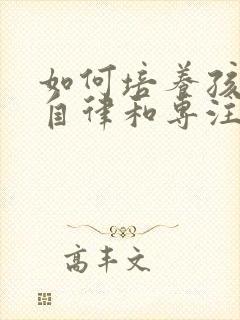 如何培养孩
自律和专注
高丰文